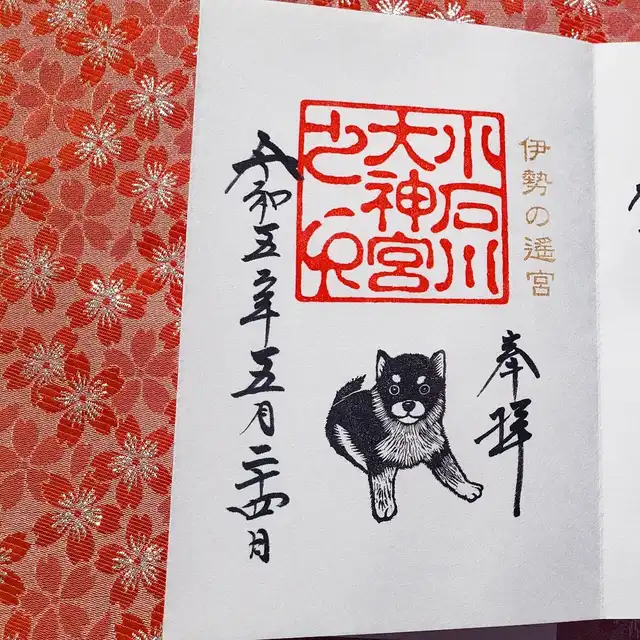 伊勢の遥宮
奉拝
小石川
大神宮
之印
令和五年五月二十四日